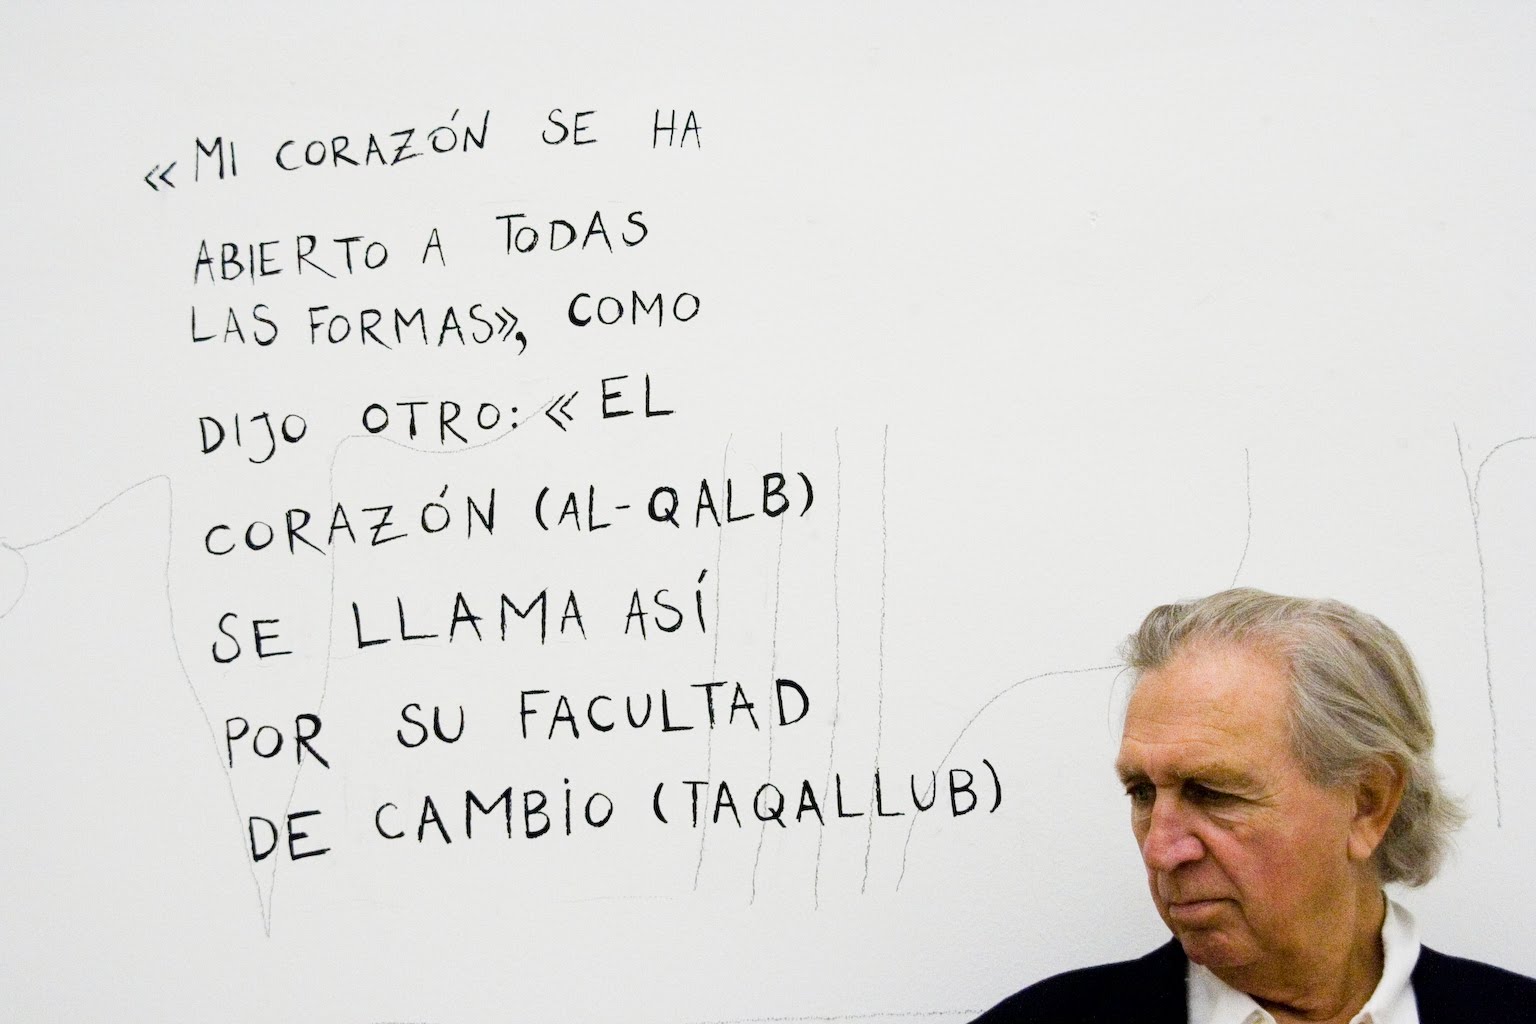 «MI CORAZÓN SE HA
ABIERTO A TODAS
LAS FORMAS», COMO
DIJO OTRO: «EL
CORAZÓN (AL-QALB)
SE LLAMA ASÍ
POR SU FACULTAD
DE CAMBIO (TAQALLUB)